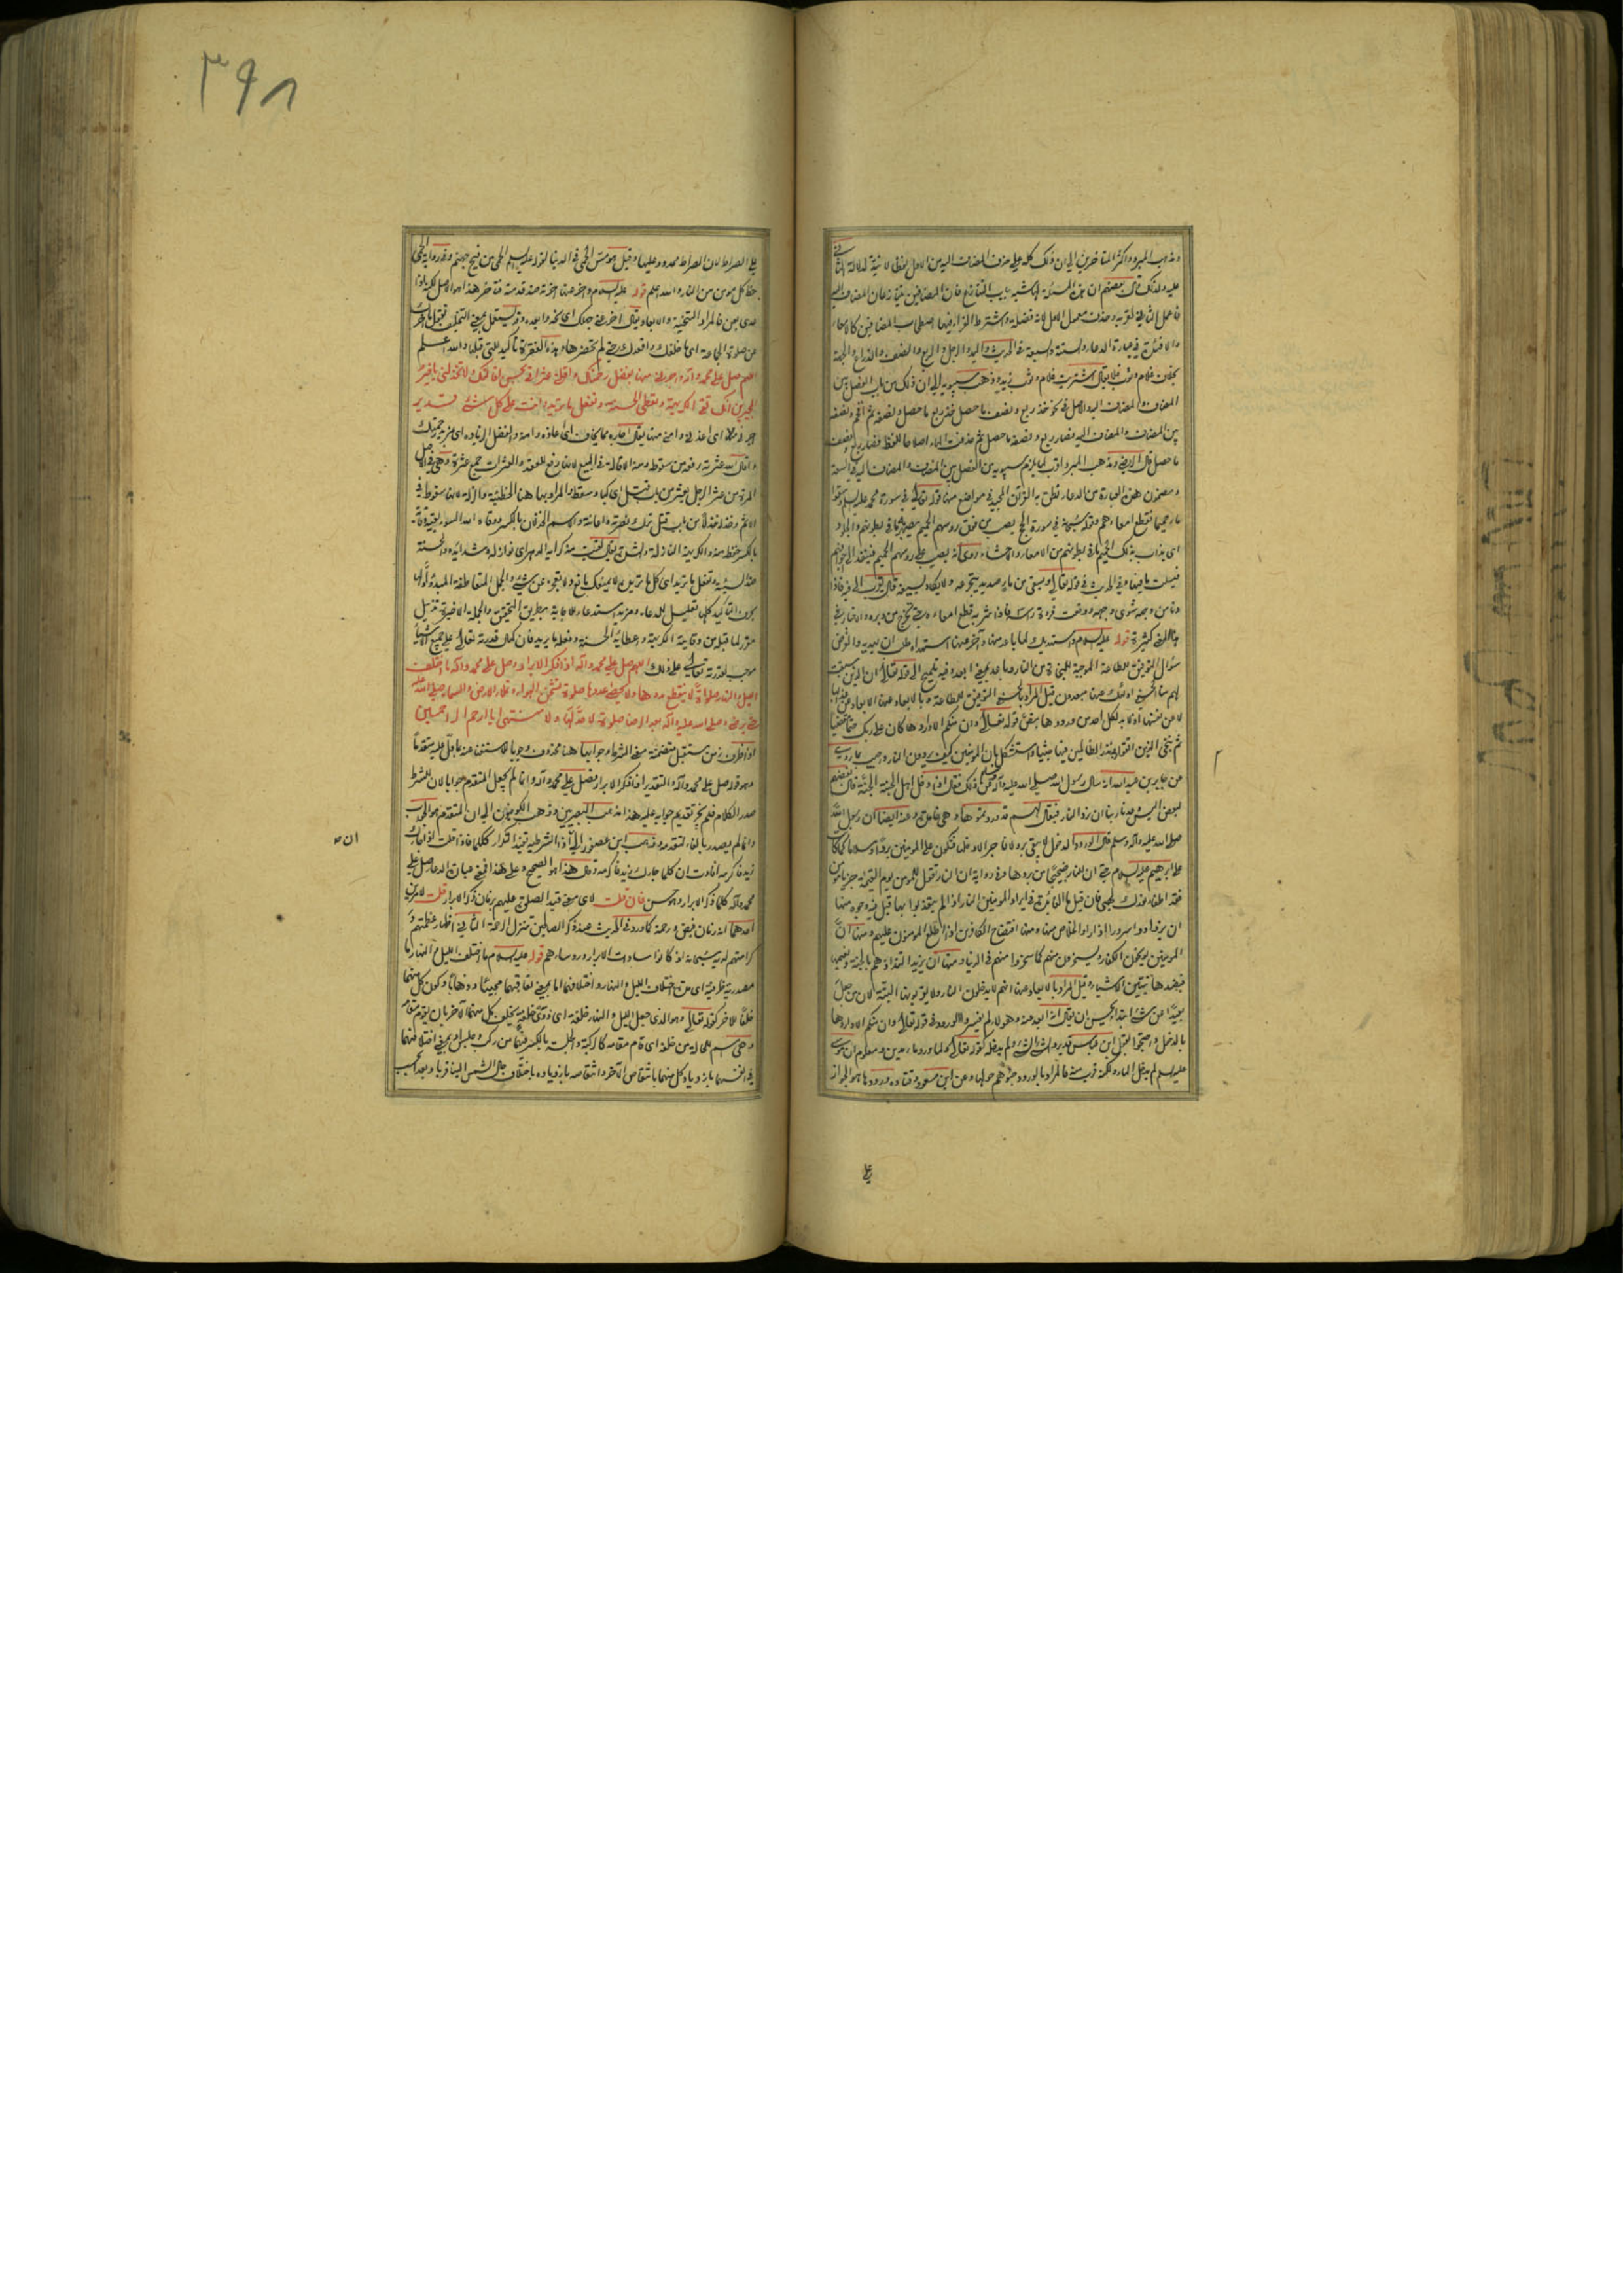 وذهب المبرد واكثر المتاخرين الى ان ذلك كله على حذف المضاف اليه من الاول لفظا لا نية لدلالة الثانى
عليه ولذلك قال بعضهم ان هذه المسئلة لها شبه بباب التنازع فان المضافين يتنازعان المضاف اليه
فاعمل الثانى لقربه وحذف معمول الاول لانه فضلة
والاقتران فى عبارة الدعاء
بخلاف غلام وثوب فلا يقال اشتريت غلام وثوب زيد وذهب سيبويه الى ان ذلك من باب الفصل بين
المضاف والمضاف اليه والاصل فى نحو خذ ربع ونصف ما حصل خذ ربع ما حصل ونصفه ثم اقحم ونصفه
بين المضاف والمضاف اليه فصار ربع ونصفه ما حصل ثم حذفت الهاء اصلاحا للفظ فصار ربع ونصف
ما حصل قال الرضى ومذهب المبرد اقرب لما يلزم سيبويه من الفصل بين المضاف والمضاف اليه فى السعة
ومضمون هذه العبارة من الدعاء نطق به القرآن المجيد فى مواضع منها قوله تعالى فى سورة محمد عليه السلام وسقوا
ماء حميما فقطع امعاءهم وقوله سبحانه فى سورة الحج يصب من فوق رؤسهم الحميم يصهر به ما فى بطونهم والجلود
اى يذاب بذلك الحميم ما فى بطونهم من الامعاء والاحشاء روى انه يصب على رؤسهم الحميم فينفذ الى اجوافهم
فيسلت ما فيها وفى الحديث فى قوله تعالى ويسقى من ماء صديد يتجرعه ولا يكاد يسيغه قال يقرب اليه فاذا
دنا منه وجهه شوى وجهه ووقعت فروة راسه فاذا شربه قطع امعاءه حتى تخرج من دبره والاخبار فى
هذا المعنى كثيرة قوله عليه السلام واستهديك لما باعد منها واخر عنها استهداه طلب ان يهديه والغرض
سؤال التوفيق للطاعة الموجبة للنجاة من النار وباعد بمعنى ابعد وفيه تلميح الى قوله تعالى ان الذين سبقت
لهم منا الحسنى اولئك عنها مبعدون قيل المراد بالحسنى التوفيق للطاعة وبالابعاد عنها الابعاد عن عذابها
لا عن نفسها اذ لا بد لكل احد من ورودها بنص قوله تعالى وان منكم الا واردها كان على ربك حتما مقضيا
ثم ننجى الذين اتقوا ونذر الظالمين فيها جثيا واستشكل بان المؤمنين كيف يردون النار واجيب بما روى
عن جابر بن عبد الله انه سال رسول الله صلى الله عليه وآله عن ذلك فقال اذا دخل اهل الجنة الجنة قال بعضهم
لبعض اليس وعدنا ربنا ان نرد النار فيقال لهم قد وردتموها وهى خامدة وعنه ايضا ان رسول الله
صلى الله عليه وآله وسلم قال الورود الدخول لا يبقى بر ولا فاجر الا دخلها فتكون على المؤمنين بردا وسلاما كما كانت
على ابراهيم عليه السلام حتى ان للنار ضجيجا من بردها وفى رواية ان النار تقول للمؤمن يوم القيمة جز يا مؤمن
فقد اطفا نورك لهبى فان قيل ما الفائدة فى ايراد المؤمنين النار اذا لم يعذبوا بها قيل فيه وجوه منها
ان يزدادوا سرورا اذا راوا الخلاص منها ومنها افتضاح الكافرين اذا اطلع المؤمنون عليهم ومنها ان
المؤمنين يوبخون الكفار ويسخرون منهم كما سخروا منهم فى الدنيا ومنها ان يزيد التذاذهم بالجنة
فبضدها تتبين الاشياء وقيل المراد بالابعاد عنها انهم لا يدخلون النار ولا يقربونها البتة لان من جعل
بعيدا عن شئ ابتداء يحسن ان يقال انه ابعد عنه وهؤلاء لم يفسروا الورود فى قوله تعالى وان منكم الا واردها
بالدخول واحتجوا
عليه السلام لم يدخل الماء ولكنه قرب منه فالمراد بالورود جثوهم حولها وعن ابن مسعود وقتادة ورودها هو الجواز
على
٣٩٨
على الصراط لان الصراط ممدود عليها وقيل هو مس الحمى فى الدنيا لقوله عليه السلام الحمى من فيح جهنم وفى رواية الحمى
حظ كل مؤمن من النار والله اعلم قوله عليه السلام واخر عنها اخرته ضد قدمته فتاخر هذا هو الاصل
فالمراد التنحية والابعاد يقال اخر عنى
عن صلوة الجماعة اى ما خلفك واقعدك حتى لم تحضرها وهذه الفقرة تاكيد للتى قبلها والله اعلم
اللهم صل على محمد وآله واجرنى منها بفضل رحمتك واقلنى عثراتى بحسن اقالتك ولا تخذلنى يا خير
المجيرين انك تقى الكريهة وتعطى الحسنة وتفعل ما تريد وانت على كل شئ قدير
اى اعذنى وامنى منها يقال اجاره مما يخاف اى اعاذه وامنه والفضل الزيادة اى بمزيد رحمتك
واقال الله عثرته رفعه من سقوطه ومنه الاقالة فى البيع لانها رفع للعقد والعثرات جمع عثرة وهى فى الاصل
المرة من عثر الرجل يعثر من باب قتل اى كبا وسقط والمراد بها هنا الخطيئة والزلة لانها سقوط فى
الاثم وخذله خذلا من باب قتل ترك نصرته واعانته والاسم الخذلان بالكسر ووقاه الله السوء يقيه وقاية
بالكسر حفظه منه والكريهة النازلة والشدة يقال لقيت منه كرايه الدهر اى نوازله وشدائده والحسنة
ضد السيئة وتفعل ما تريد اى كل ما تريد لا يمنعك مانع ولا تعجز عن شئ والجمل المتعاطفة المبدو اولها
بحرف التاكيد كلها تعليل للدعاء ومزيد استدعاء للاجابة بطريق التحقيق والجملة الاخيرة تذييل
مقرر لما قبله من وقاية الكريهة واعطاء الحسنة وفعله ما يريد فان كمال قدرته تعالى على جميع الاشياء
موجب لقدرته تعالى على ذلك اللهم صل على محمد وآله اذا ذكر الابرار وصل على محمد وآله ما اختلف
الليل والنهار صلوة لا ينقطع مددها ولا يحصى عددها صلوة تشحن الهواء وتملا الارض والسماء صلى الله عليه
حتى يرضى وصلى الله عليه وآله بعد الرضا صلوة لا حد لها ولا منتهى يا ارحم الراحمين
اذا ظرف زمن مستقبل متضمنة معنى الشرط وجوابها هنا محذوف وجوبا للاستغناء عنه بما دل عليه متقدما
وهو قوله صل على محمد وآله والتقدير اذا ذكر الابرار فصل على محمد وآله وانما لم يجعل المتقدم جوابا لان للشرط
صدر الكلام فلم يجز تقديم جوابه عليه هذا مذهب البصريين وذهب الكوفيون الى ان المتقدم هو الجواب
وانما لم يصدر بالفاء لتقدمه وذهب ابن عصفور الى ان اذا الشرطية تفيد التكرار ككلما فاذا قلت اذا جاءك
زيد فاكرمه افادت ان كلما جاءك زيد فاكرمه وقال هذا هو الصحيح وعلى هذا فمعنى عبارة الدعاء صل على
محمد وآله كلما ذكر الابرار وهو حسن فان قلت لاى معنى قيد الصلوة عليهم بزمان ذكر الابرار قلت لامرين
احدهما انه زمان فيض ورحمة كما ورد فى الحديث عند ذكر الصالحين تنزل الرحمة الثانى اظهار عظمتهم و
كرامتهم لديه سبحانه اذ كانوا سادات الابرار ورؤساءهم قوله عليه السلام ما اختلف الليل والنهار ما
مصدرية ظرفية اى مدة اختلاف الليل والنهار واختلافهما اما بمعنى تعاقبهما مجيئا وذهابا وكون كل منهما
خلفا للاخر كقوله تعالى وهو الذى جعل الليل والنهار خلفة اى ذوى خلفة يخلف كل منهما الاخر بان يقوم مقامه
وهى اسم للحالة من خلفه اى قام مقامه كالركبة والجلسة بالكسر فيهما من ركب وجلس او بمعنى اختلافهما
فى انفسهما بازدياد كل منهما بانتقاص الآخر وانتقاصه بازدياده باختلاف حال الشمس الينا قربا وبعدا بحسب
ان ه